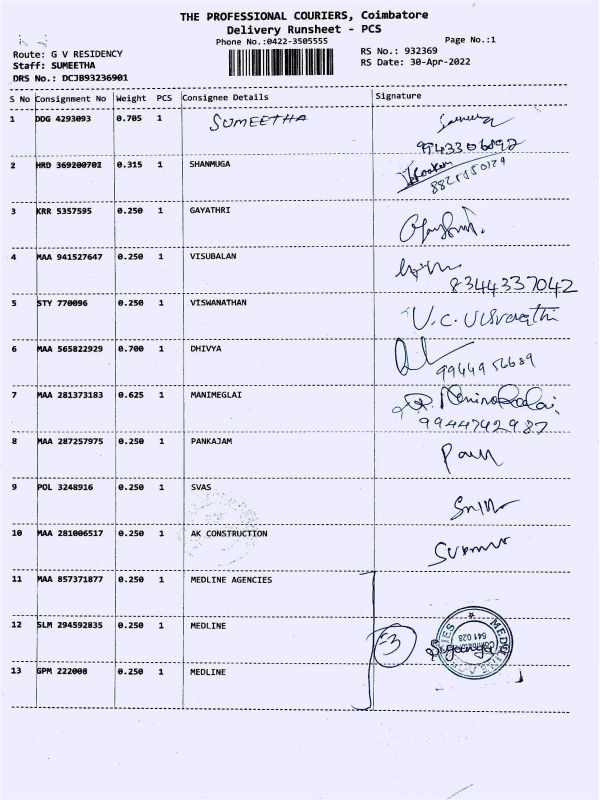 THE PROFESSIONAL COURIERS, Coimbatore
Delivery Runsheet - PCS
Phone No.:0422-3505555
Page No.:1
Route: G V RESIDENCY
RS No.: 932369
Staff: SUMEETHA
RS Date: 30-Apr-2022
DRS No.: DCJB93236901
S No Consignment No Weight PCS Consignee Details Signature
1 DDG 4293093 0.705 1 SUMEETHA
9943306892
2 HRD 369200702 0.315 1 SHANMUGA
3 KRR 5357595 0.250 1 GAYATHRI
4 MAA 941527647 0.250 1 VISUBALAN
8344337042
5 STY 770096 0.250 1 VISWANATHAN
V.C.
6 MAA 565822929 0.700 1 DHIVYA
9944956689
7 MAA 281373183 0.625 1 MANIMEGLAI
9944742987
8 MAA 287257975 0.250 1 PANKAJAM
9 POL 3248916 0.250 1 SVAS
10 MAA 281006517 0.250 1 AK CONSTRUCTION
11 MAA 857371877 0.250 1 MEDLINE AGENCIES
12 SLM 294592835 0.250 1 MEDLINE
3
MEDLINE AGENCIES
641 028
13 GPM 222008 0.250 1 MEDLINE